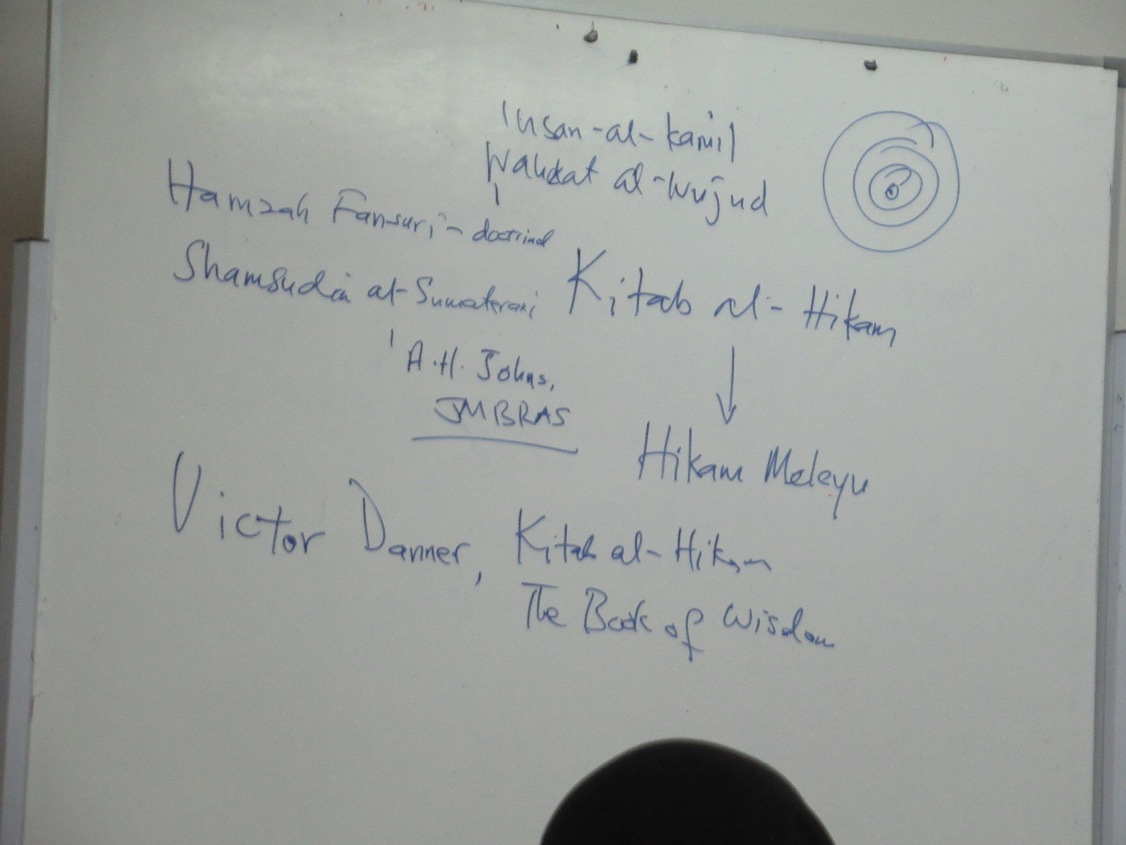 Insan-al-kamil
Wahdat al-wujud
Hamzah Fansuri - doctrinal
Shamsudin al-Sumaterani
Kitab al-Hikam
A.H. Johns,
JMBRAS
Hikam Melayu
Victor Danner, Kitab al-Hikam
The Book of Wisdom